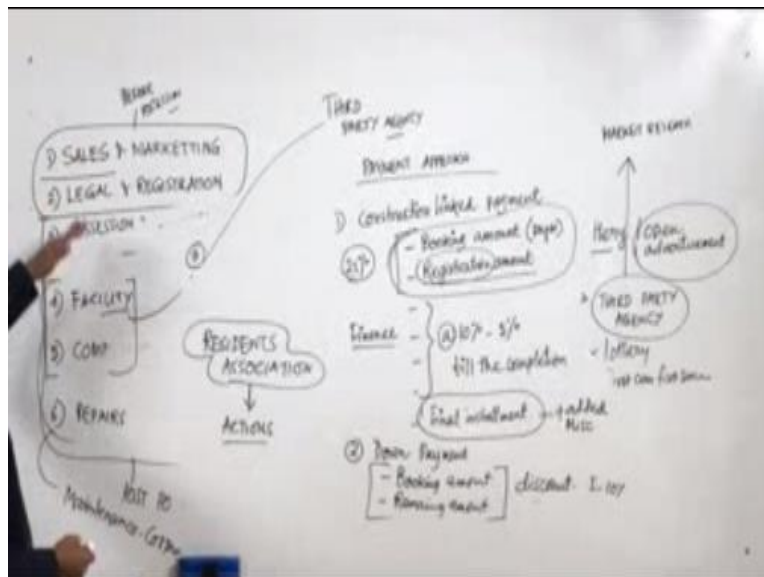 BEFORE
1) SALES & MARKETTING
2) LEGAL & REGISTRATION
4) FACILITY
5) COMP
6) REPAIRS
POST PO
Maintenance
THIRD
PARTY AGENCY
RESIDENTS
ASSOCIATION
ACTIONS
PAYMENT APPROACH
1) Construction linked payment
- Booking amount
- Registration amount
Finance
10% - 5%
till the completion
Final installment + added
Misc
② Down Payment
- Booking amount
- Remaining amount
discount
MARKET RESEARCH
Open
advertisement
THIRD PARTY
AGENCY
- lottery